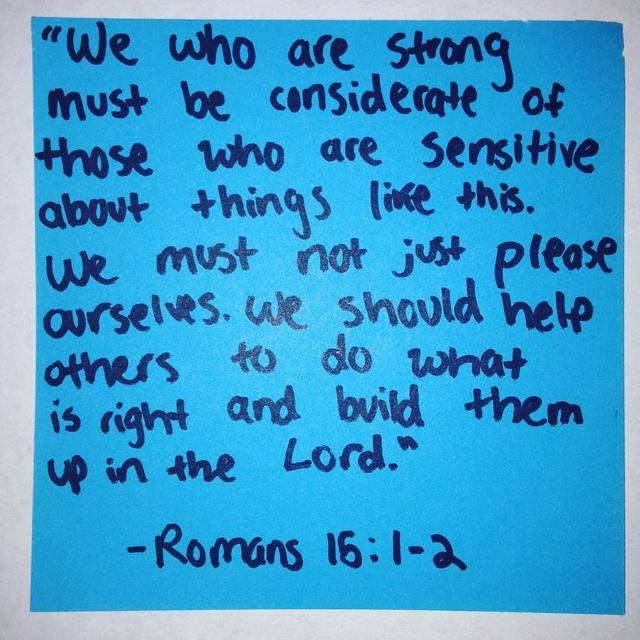 "We who are strong
must be considerate of
those who are sensitive
about things like this.
We must not just please
ourselves. We should help
others to do what
is right and build them
up in the Lord."
-Romans 15:1-2